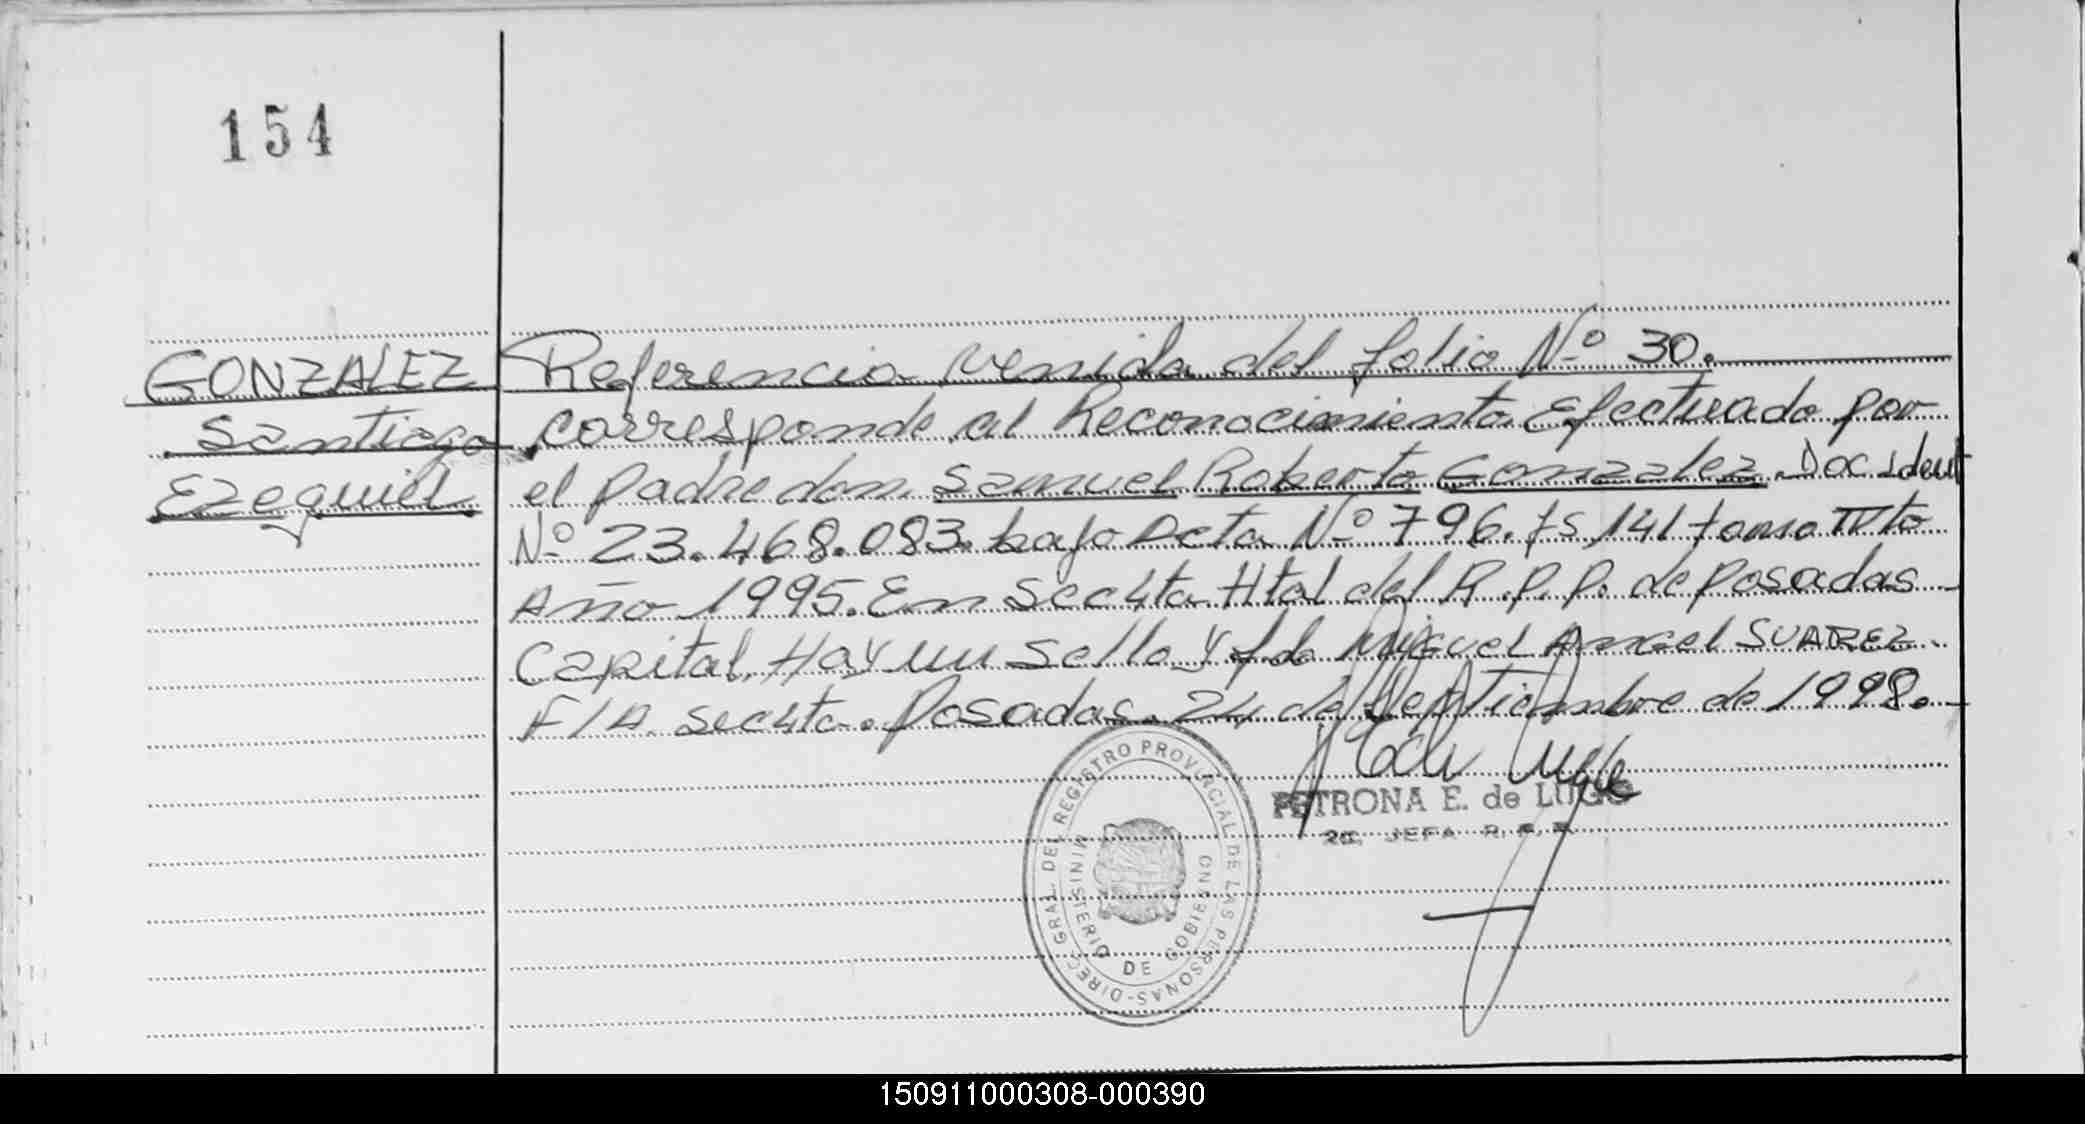 154
GONZALEZ
Santiago
Ezequiel
Referencia venida del folio Nº 30.
corresponde al Reconocimiento Efectuado por
el padre don Samuel Roberto Gonzalez. Doc. Ident
Nº 23.468.083. bajo Acta Nº 796. fs 141 tomo IVto
Año 1995. En Secc 4ta Htal del R.P.P. de Posadas
Capital. Hay un Sello y fdo Miguel Angel SUAREZ.
F/A. Secc 4ta. Posadas. 24 de Septiembre de 1998.
DIREC. GRAL. DEL REGISTRO PROVINCIAL DE LAS PERSONAS-
MINISTERIO DE GOBIERNO
PETRONA E. de LUGO
2a. JEFA R.P.P.
150911000308-000390